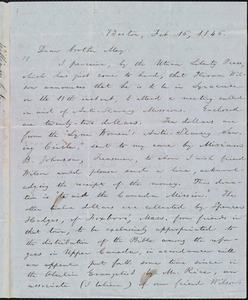 Boston, Feb. 16, 1846.
Dear Brother May:
I perceive, by the Utican Liberty Press,
which has just come to hand, that Hiram Wil-
son announces that he is to be in Syracuse
on the 18th instant, to attend a meeting called
in aid of Anti-Slavery Missions. Enclosed
are twenty-two dollars. Ten dollars are
from the "Lynn Women's Anti-Slavery Sew-
ing Circle," sent to my care by Miriam
B. Johnson, Treasurer, to whom I wish friend
Wilson would send a line, acknowl-
edging the receipt of the money. This don-
ation is to aid the Canada Mission. The
other twelve dollars were collected by Spencer
Hodges, of Foxboro', Mass. from friends in
that town, to be exclusively appropriated to
the distribution of the Bible among the refu-
gees in Upper Canada, in accordance with
an appeal put forth some time since in
the Oberlin Evangelist by Mr. Rice, an
associate (I believe) of our friend Wilson.